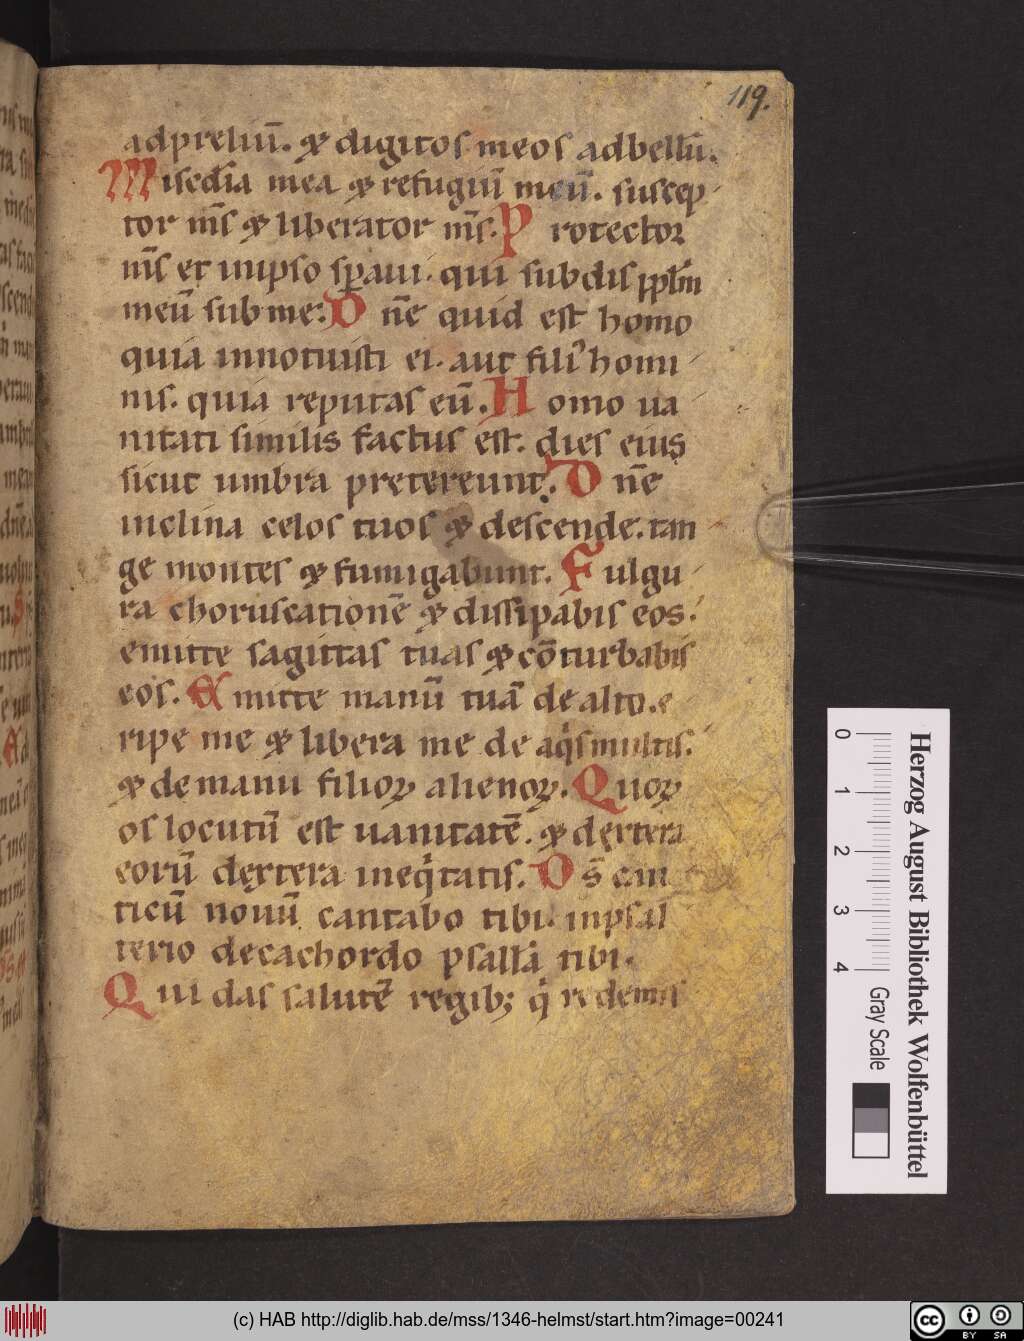 119.
adpreliū. & digitos meos adbellū.
Misedia mea & refugiū meū. suscep
tor ms̄ & liberator ms̄. Protector
ms̄ et inipso spaui. qui subdis pplm
meū sub me. Dne quid est homo
quia innotuisti ei. aut fili homi
nis. quia reputas eū. Homo ua
nitati similis factus est. dies eius
sicut umbra pretereunt. Dne
inclina celos tuos & descende. tan
ge montes & fumigabunt. Fulgu
ra choruscationē & dissipabis eos.
emitte sagittas tuas & cōturbabis
eos. Emitte manū tuā de alto. e
ripe me & libera me de aqis multis.
& de manu filioꝝ alienoꝝ. Quoꝝ
os locutū est uanitatē. & dęxtera
eorū dęxtera ineqitatis. Ds̄ can
ticū nouū cantabo tibi. inpsal
terio decachordo psallā tibi.
Qui das salutē regib; qi redemis
Herzog August Bibliothek Wolfenbüttel
0 1 2 3 4 Gray Scale
(c) HAB http://diglib.hab.de/mss/1346-helmst/start.htm?image=00241
cc BY SA